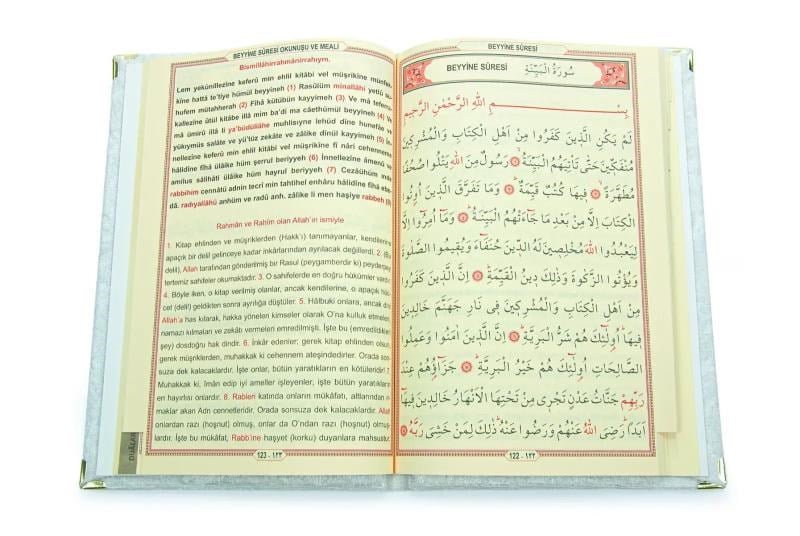 BEYYİNE SÛRESİ OKUNUŞU VE MEALİ
Bismillâhirrahmânirrahîym.
Lem yekünillezine keferû min ehlil kitâbi vel müşrikîne münfek-
kîne hattâ te'tiye hümül beyyineh (1) Rasûlüm minallâhi yetlû
hufem mütahherah (2) Fîhâ kütübün kayyimeh (3) Ve mâ tefer
kallezîne ûtül kitâbe illâ mim ba'di ma câethümül beyyineh (4) Ve
mâ ümirû illâ li ya'büdüllâhe muhlisıyne lehüd dîne hunefâe ve
yükıymüs salâte ve yü'tüz zekâte ve zâlike dînül kayyimeh (5) İn-
nellezîne keferû min ehlil kitâbi vel müşrikîne fî nâri cehenneme
hâlidîne fîhâ ülâike hüm şerrul beriyyeh (6) İnnellezîne âmenû ve
amilus sâlihâti ülâike hüm hayrul beriyyeh (7) Cezâühüm ınde
rabbihim cennâtü adnin tecrî min tahtihel enhâru hâlidîne fîhâ ebe-
dâ. radıyallâhü anhüm ve radû anh. zâlike li men haşiye rabbeh (8)
Rahmân ve Rahîm olan Allah'ın ismiyle
1. Kitap ehlinden ve müşriklerden (Hakk'ı) tanımayanlar, kendilerine
apaçık bir delil gelinceye kadar inkârlarından ayrılacak değillerdi. 2. (Bu
delil), Allah tarafından gönderilmiş bir Rasul (peygamberdir ki) peyderpey
tertemiz sahifeler okumaktadır. 3. O sahifelerde en doğru hükümler vardır.
4. Böyle iken, o kitap verilmiş olanlar, ancak kendilerine, o apaçık hüc-
cet (delil) geldikten sonra ayrılığa düştüler. 5. Hâlbuki onlara, ancak dini
Allah'a has kılarak, hakka yönelen kimseler olarak O'na kulluk etmeleri,
namazı kılmaları ve zekâtı vermeleri emredilmişti. İşte bu (emredildikleri
şey) dosdoğru hak dindir. 6. İnkâr edenler; gerek kitap ehlinden olsun,
gerek müşriklerden, muhakkak ki cehennem ateşindedirler. Orada son-
suza dek kalacaklardır. İşte onlar, bütün yaratıkların en kötüleridir! 7.
Muhakkak ki, îman edip iyi ameller işleyenler, işte bütün yaratıkların
en hayırlısı onlardır. 8. Rableri katında onların mükâfatı, altlarından ır-
maklar akan Adn cennetleridir. Orada sonsuza dek kalacaklardır. Allah
onlardan razı (hoşnut) olmuş, onlar da O'ndan razı (hoşnut) olmuş-
lardır. İşte bu mükâfat, Rabb'ine haşyet (korku) duyanlara mahsustur.
DUÂLAR
123 - ١٢٣
BEYYİNE SÛRESİ
BEYYİNE SÛRESİ سُورَةُ الْبَيِّنَةِ
بِسْــــــمِ اللهِ الرَّحْمٰنِ الرَّحِيمِ
لَمْ يَكُنِ الَّذِينَ كَفَرُوا مِنْ اَهْلِ الْكِتَابِ وَالْمُشْرِكِينَ
مُنْفَكِّينَ حَتّٰى تَأْتِيَهُمُ الْبَيِّنَةُ ۙ رَسُولٌ مِنَ اللهِ يَتْلُوا صُحُفًا
مُطَهَّرَةً ۙ فِيهَا كُتُبٌ قَيِّمَةٌ ۜ وَمَا تَفَرَّقَ الَّذِينَ اُوتُوا
الْكِتَابَ اِلَّا مِنْ بَعْدِ مَا جَاءَتْهُمُ الْبَيِّنَةُ ۜ وَمَا اُمِرُوا اِلَّا
لِيَعْبُدُوا اللهَ مُخْلِصِينَ لَهُ الدِّينَ حُنَفَاءَ وَيُقِيمُوا الصَّلٰوةَ
وَيُؤْتُوا الزَّكٰوةَ وَذٰلِكَ دِينُ الْقَيِّمَةِ ۜ اِنَّ الَّذِينَ كَفَرُوا
مِنْ اَهْلِ الْكِتَابِ وَالْمُشْرِكِينَ فِي نَارِ جَهَنَّمَ خَالِدِينَ
فِيهَا اُولٰئِكَ هُمْ شَرُّ الْبَرِيَّةِ ۜ اِنَّ الَّذِينَ اٰمَنُوا وَعَمِلُوا
الصَّالِحَاتِ اُولٰئِكَ هُمْ خَيْرُ الْبَرِيَّةِ ۜ جَزَاؤُهُمْ عِنْدَ
رَبِّهِمْ جَنَّاتُ عَدْنٍ تَجْرِي مِنْ تَحْتِهَا الْاَنْهَارُ خَالِدِينَ فِيهَا
اَبَدًا رَضِيَ اللهُ عَنْهُمْ وَرَضُوا عَنْهُ ذٰلِكَ لِمَنْ خَشِيَ رَبَّهُ
122 - ١٢٢